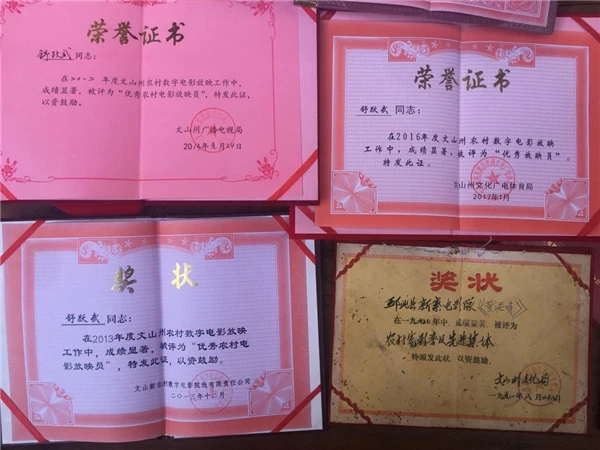 荣誉证书
舒跃武 同志：
在二〇一二年度文山州农村数字电影放映工作中，
成绩显著，被评为“优秀农村电影放映员”，特发此证，
以资鼓励。
文山州广播电视局
荣誉证书
舒跃武 同志：
在2016年度文山州农村数字电影放映
工作中，成绩显著，被评为“优秀放映员”。
特发此证。
文山州文化广电体育局
2017年1月
奖状
舒跃武 同志：
在2013年度文山州农村数字电影放映
工作中，成绩显著，被评为“优秀农村电
影放映员”，特发此证，以资鼓励。
文山新农村数字电影院线有限责任公司
二〇一三年十二月
奖状
邱北县新寨电影队
在一九九〇年中，成绩显著，被评为
农村电影普及先进集体
特颁发此状，以资鼓励。
文山州文化局